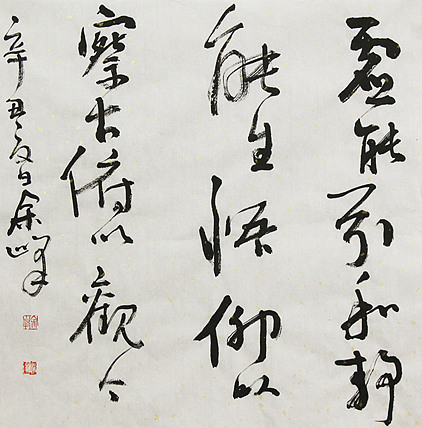 虚能引和静
能生悟仰以
察古俯以观今
辛丑夏日余峰